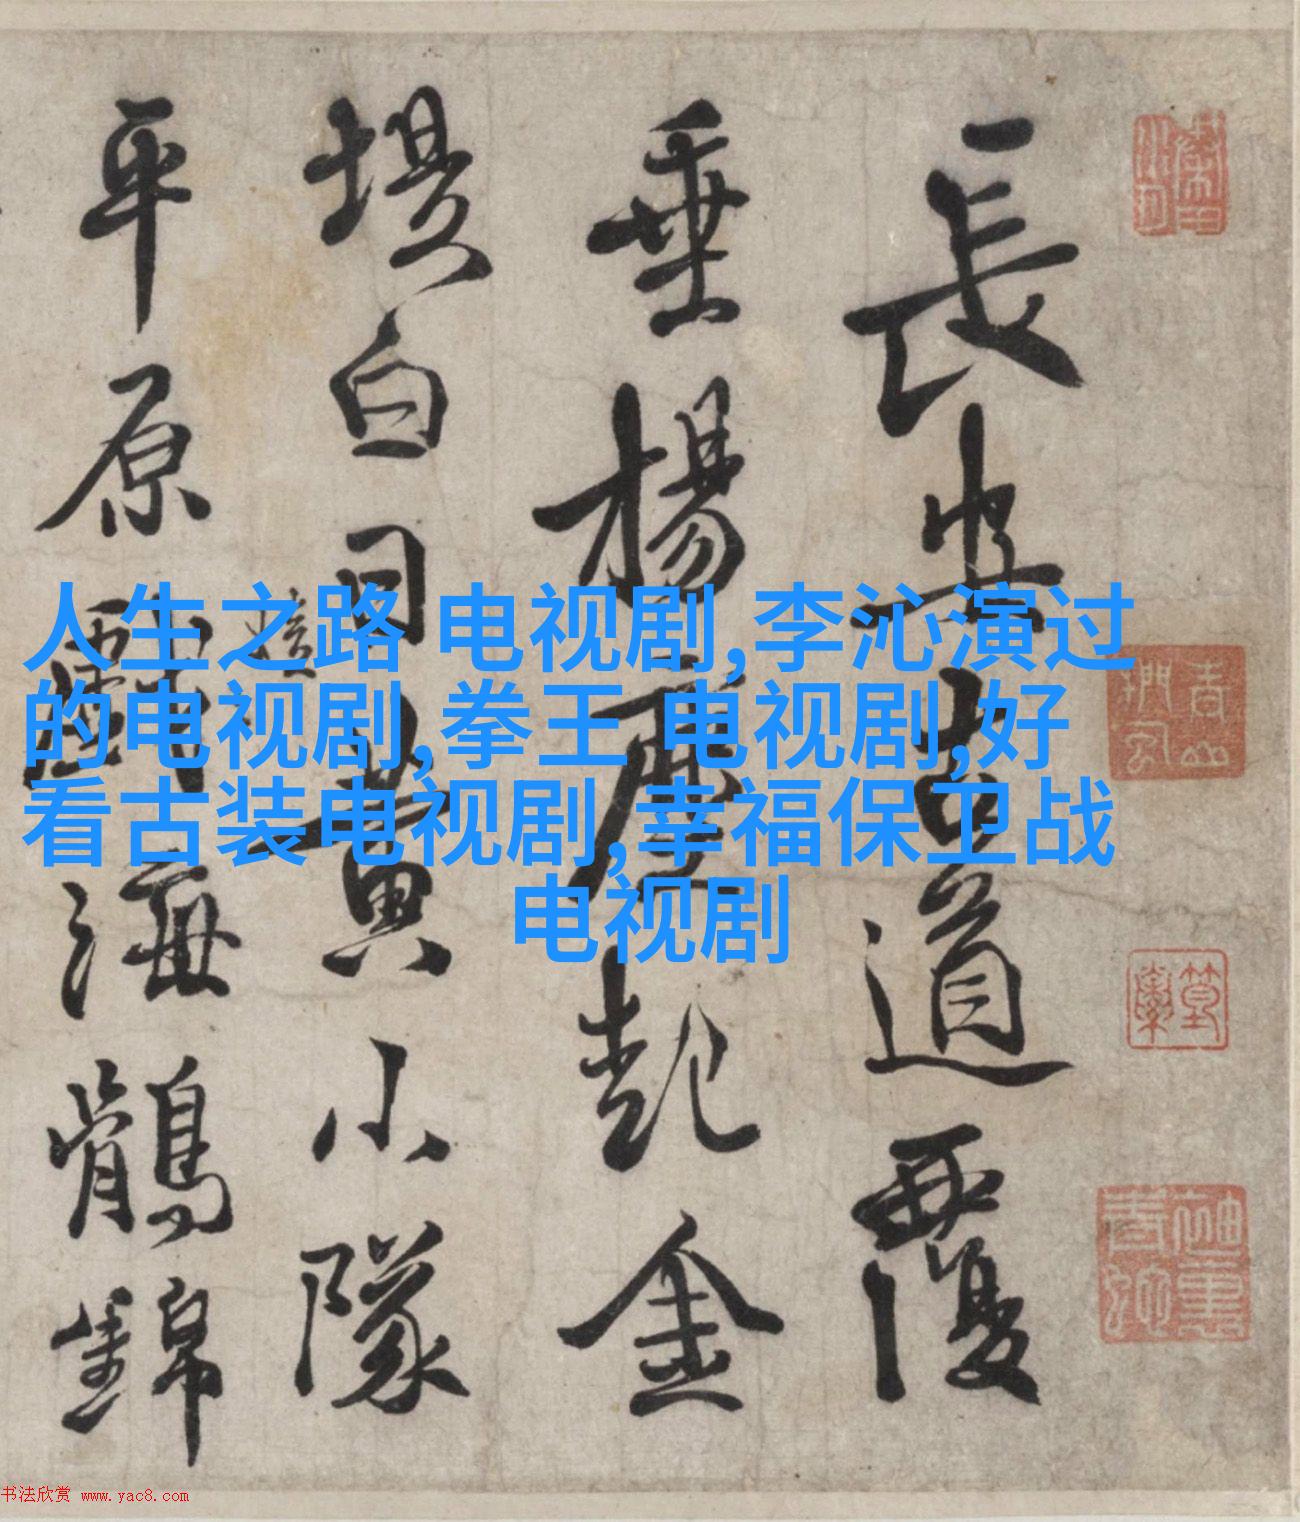 長安古道覆
垂楊塵起金
堤白日黄小隊
平原海鶻錦
人生之路 电视剧,李沁演过
的电视剧,拳王 电视剧,好
看古装电视剧,幸福保卫战
电视剧
书法欣赏 www.yac8.com